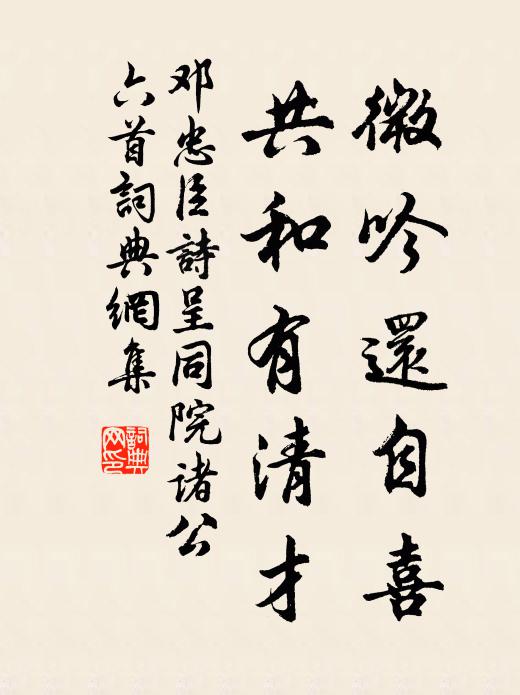 微吟還自喜
共和有清才
邓忠臣詩呈同院诸公
六首詞典網集
詞典
网印